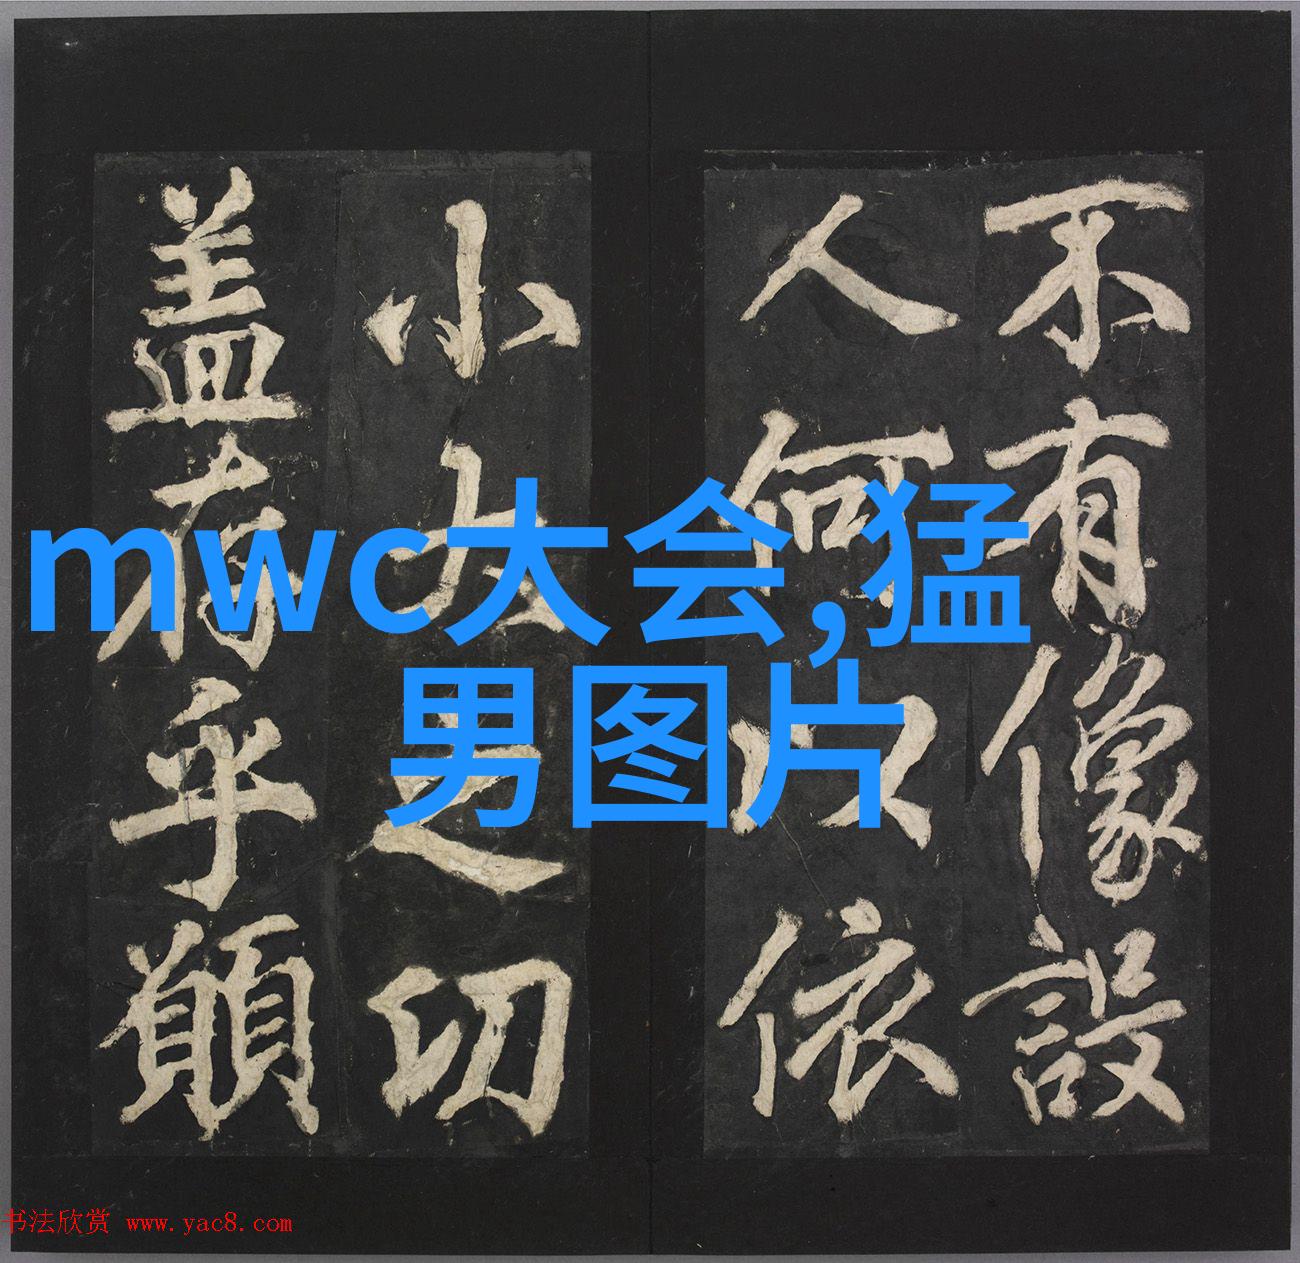 不有像設
人何以依
小之切
盖存乎願
mwc大会,猛
男图片
书法欣赏 www.yac8.com